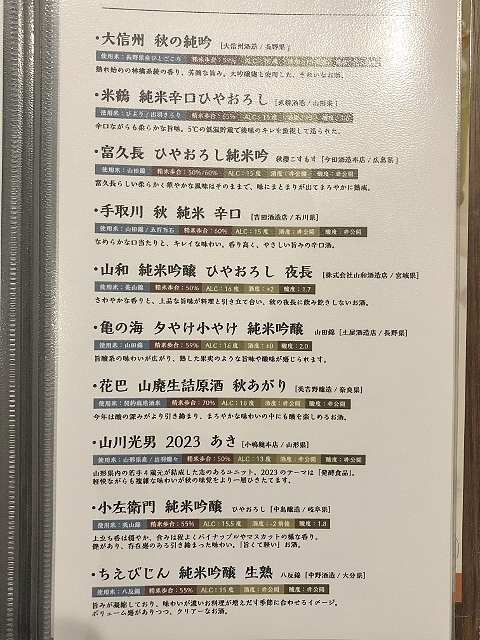 ・大信州 秋の純吟 [大信州酒造 / 長野県]
使用米：長野県産ひとごこち 精米歩合：59%
熟れ始めの林檎系統の香り、芳潤な旨み。大吟醸値と使用した、きれいなお酒。
・米鶴 純米辛口ひやおろし [米鶴酒造 / 山形県]
精米歩合：65% ALC：15度
辛口ながらも柔らかな旨味。5℃の低温貯蔵で後味のキレを重視して造られた。
・富久長 ひやおろし純米吟 秋櫻こすもす [今田酒造本店 / 広島県]
使用米：山田錦 精米歩合：50%/60% ALC：15度 酒度：非公開 酸度：非公開
富久長らしい柔らかく華やかな風味はそのままで、味にまとまりが出てまろやかに熟成。
・手取川 秋 純米 辛口 [吉田酒造店 / 石川県]
使用米：山田錦 / 五百万石 精米歩合：60% ALC：15度 酒度：非公開 酸度：非公開
なめらかな口当たりと、キレイな味わい。香り高く、やさしい旨みの辛口酒。
・山和 純米吟醸 ひやおろし 夜長 [株式会社山和酒造店 / 宮城県]
使用米：美山錦 精米歩合：50% ALC：16度 酒度：+2 酸度：1.7
さわやかな香りと、上品な旨味が料理と引き立て合い、秋の夜長に飲み飽きしないお酒。
・亀の海 夕やけ小やけ 純米吟醸 山田錦 [土屋酒造店 / 長野県]
使用米：山田錦 精米歩合：59% ALC：16度 酒度：±0 酸度：2.0
旨酸系の味わいが広がり、熟した果実のような旨味や酸味が感じられます。
・花巴 山廃生詰原酒 秋あがり [美吉野醸造 / 奈良県]
使用米：契約栽培酒米 精米歩合：70% ALC：18度 酒度：非公開 酸度：非公開
今年は酸の深みがより引き締まり、まろやかな味わいの中にも酸を楽しめるお酒。
・山川光男 2023 あき [小嶋総本店 / 山形県]
使用米：山形県産 / 出羽燦々 精米歩合：50% ALC：13度 酒度：非公開 酸度：非公開
山形県内の若手4蔵元が結成した造のあるユニット。2023のテーマは「発酵食品」。
軽快ながらも複雑な味わいが秋の味覚をより一層ひきたてます。
・小左衛門 純米吟醸 ひやおろし [中島醸造 / 岐阜県]
使用米：美山錦 精米歩合：55% ALC：15.5度 酒度：-2前後 酸度：1.8
上立ち香は穏やか、含みは程よくパイナップルやマスカットの様な香り。
艶があり、存在感のある引き締まった味わい。「旨くて軽い」お酒。
・ちえびじん 純米吟醸 生熟 八反錦 [中野酒造 / 大分県]
使用米：八反錦 精米歩合：55% ALC：16度 酒度：非公開 酸度：非公開
旨みが凝縮しており、味わいが濃いお料理が増えだす季節に合わせるイメージ。
ボリューム感がありつつ、クリアーなお酒。